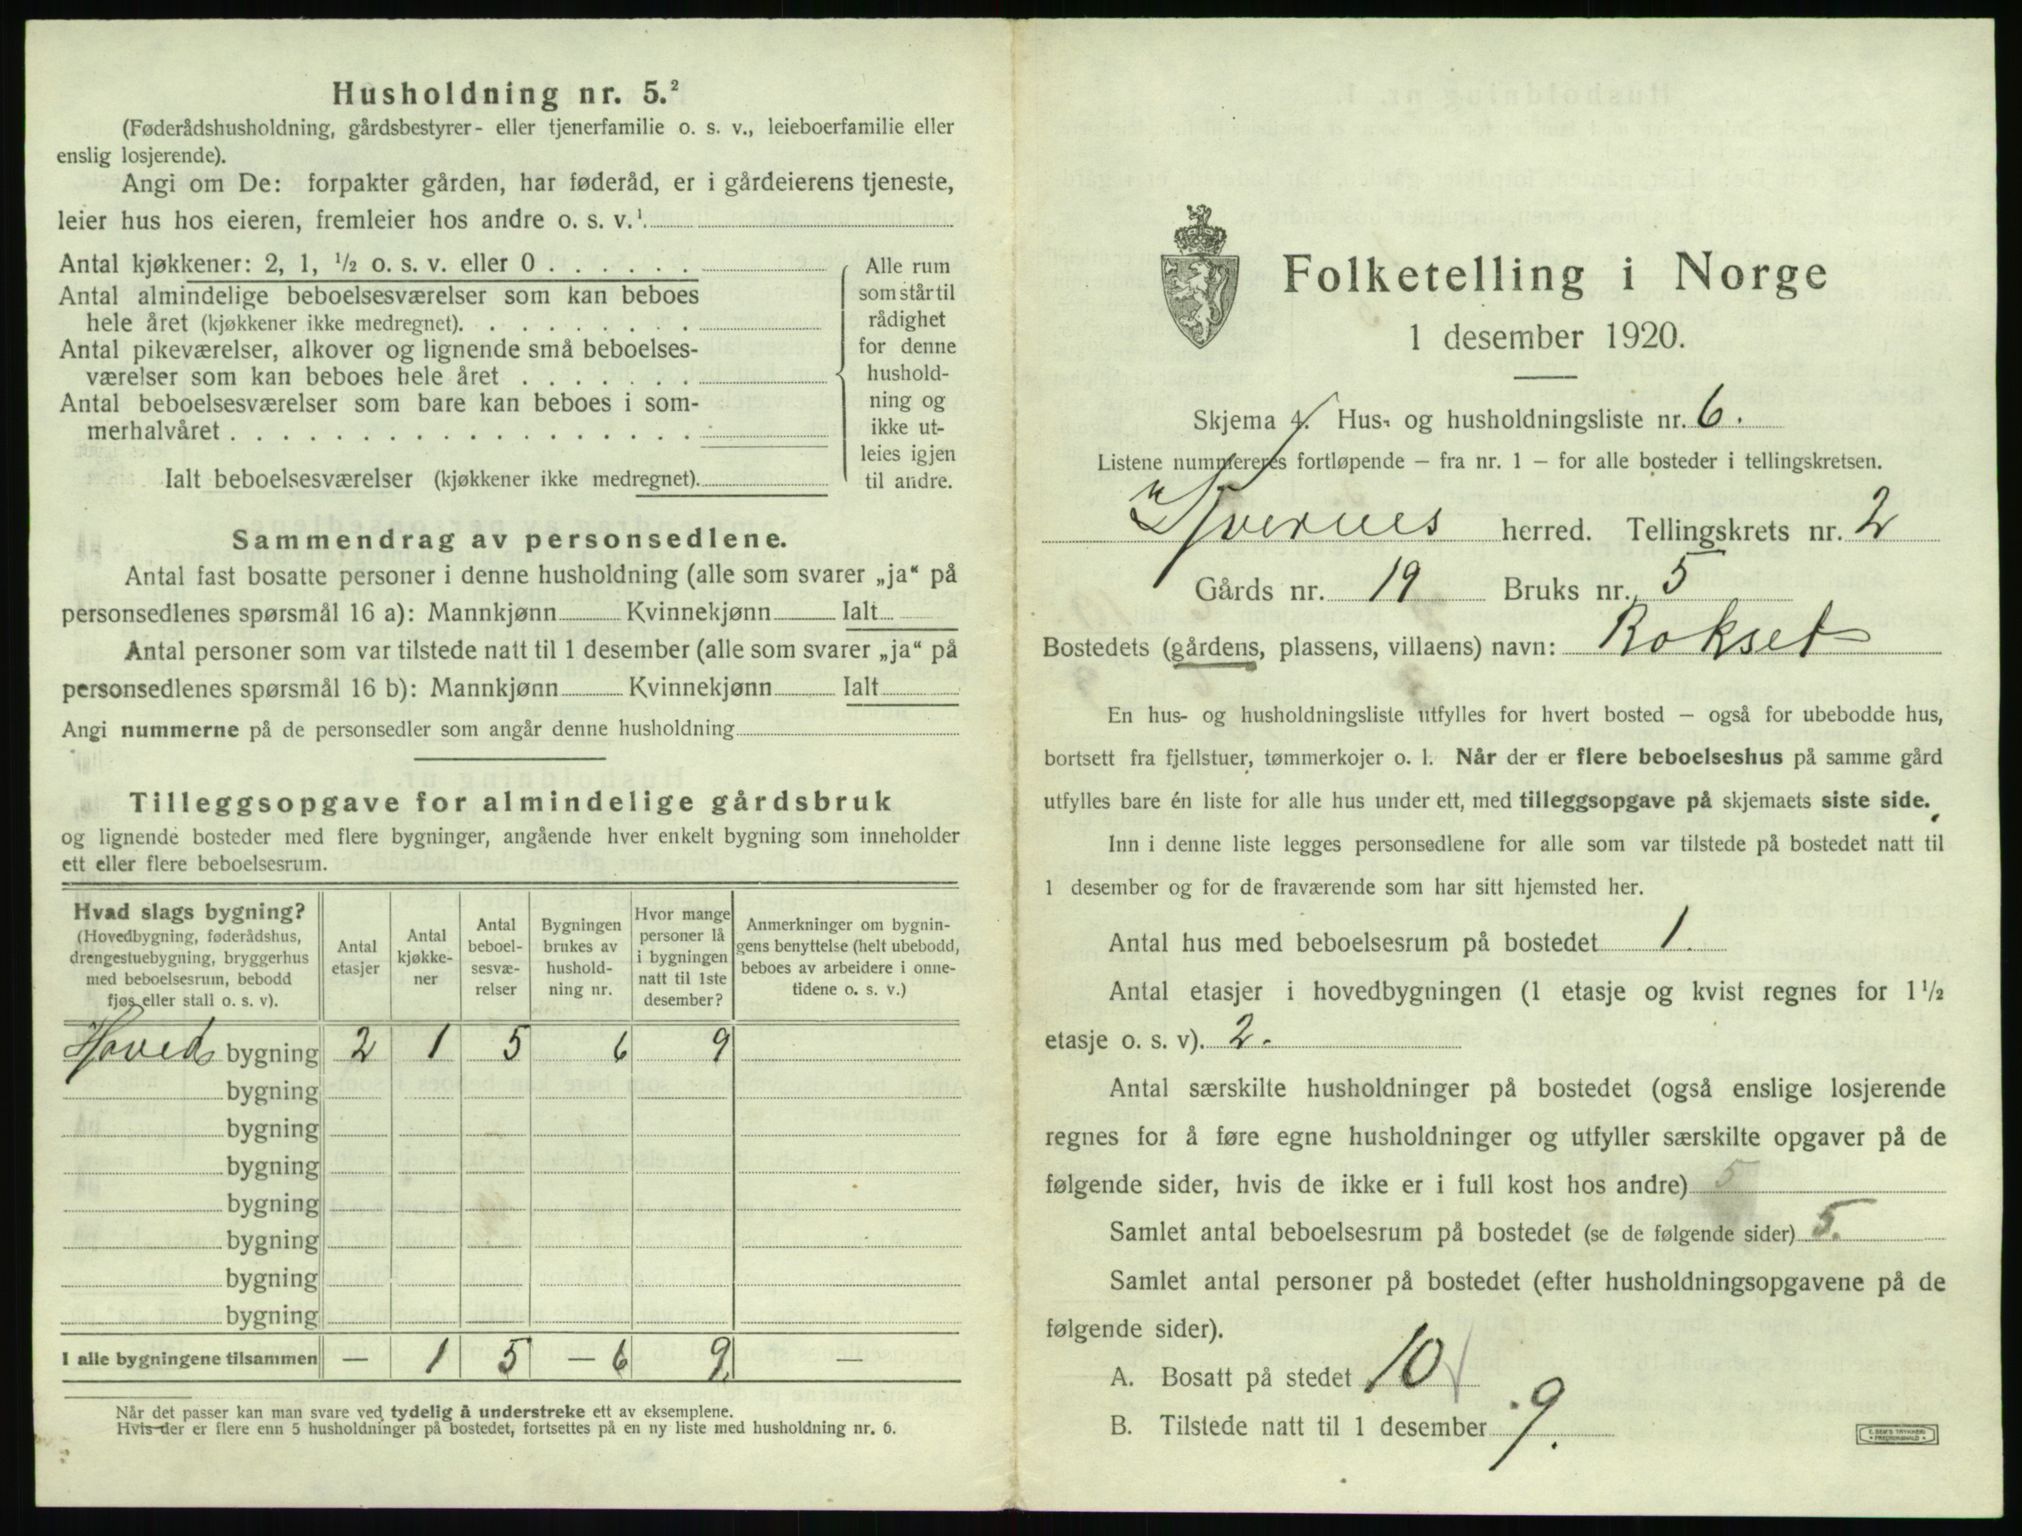 Husholdning nr. 5.²
(Føderådshusholdning, gårdsbestyrer- eller tjenerfamilie o. s. v., leieboerfamilie eller
enslig losjerende).
Angi om De: forpakter gården, har føderåd, er i gårdeierens tjeneste,
leier hus hos eieren, fremleier hos andre o. s. v.¹
Antal kjøkkener: 2, 1, ½ o. s. v. eller 0
Antal almindelige beboelsesværelser som kan beboes
hele året (kjøkkener ikke medregnet).
Antal pikeværelser, alkover og lignende små beboelses-
værelser som kan beboes hele året
Antal beboelsesværelser som bare kan beboes i som-
merhalvåret
Ialt beboelsesværelser (kjøkkener ikke medregnet).
Alle rum
som står til
rådighet
for denne
hushold-
ning og
ikke ut-
leies igjen
til andre.
Sammendrag av personsedlene.
Antal fast bosatte personer i denne husholdning (alle som svarer „ja“ på
personsedlenes spørsmål 16 a): Mannkjønn Kvinnekjønn Ialt
Antal personer som var tilstede natt til 1 desember (alle som svarer „ja“ på
personsedlenes spørsmål 16 b): Mannkjønn Kvinnekjønn Ialt
Angi nummerne på de personsedler som angår denne husholdning
Tilleggsopgave for almindelige gårdsbruk
og lignende bosteder med flere bygninger, angående hver enkelt bygning som inneholder
ett eller flere beboelsesrum.
Hvad slags bygning?
(Hovedbygning, føderådshus,
drengestuebygning, bryggerhus
med beboelsesrum, bebodd
fjøs eller stall o. s. v).
Antal
etasjer
Antal
kjøkke-
ner
Antal
beboel-
sesvæ-
relser
Bygningen
brukes av
hushold-
ning nr.
Hvor mange
personer lå
i bygningen
natt til 1ste
desember?
Anmerkninger om bygnin-
gens benyttelse (helt ubebodd,
beboes av arbeidere i onne-
tidene o. s. v.)
Hoveds bygning 2 1 5 6 9
bygning
bygning
bygning
bygning
bygning
bygning
bygning
I alle bygningene tilsammen — 1 5 — 6 9 —
Når det passer kan man svare ved tydelig å understreke ett av eksemplene.
Hvis der er flere enn 5 husholdninger på bostedet, fortsettes på en ny liste med husholdning nr. 6.
Folketelling i Norge
1 desember 1920.
Skjema 4. Hus- og husholdningsliste nr. 6.
Listene nummereres fortløpende – fra nr. 1 – for alle bosteder i tellingskretsen.
herred. Tellingskrets nr. 2
Gårds nr. 19 Bruks nr. 5
Bostedets (gårdens, plassens, villaens) navn: Rokset
En hus- og husholdningsliste utfylles for hvert bosted – også for ubebodde hus,
bortsett fra fjellstuer, tømmerkojer o. l. Når der er flere beboelseshus på samme gård
utfylles bare én liste for alle hus under ett, med tilleggsopgave på skjemaets siste side.
Inn i denne liste legges personsedlene for alle som var tilstede på bostedet natt til
1 desember og for de fraværende som har sitt hjemsted her.
Antal hus med beboelsesrum på bostedet 1.
Antal etasjer i hovedbygningen (1 etasje og kvist regnes for 1½
etasje o. s. v). 2.
Antal særskilte husholdninger på bostedet (også enslige losjerende
regnes for å føre egne husholdninger og utfyller særskilte opgaver på de
følgende sider, hvis de ikke er i full kost hos andre) 5
Samlet antal beboelsesrum på bostedet (se de følgende sider) 5.
Samlet antal personer på bostedet (efter husholdningsopgavene på de
følgende sider).
A. Bosatt på stedet 10
B. Tilstede natt til 1 desember 9.